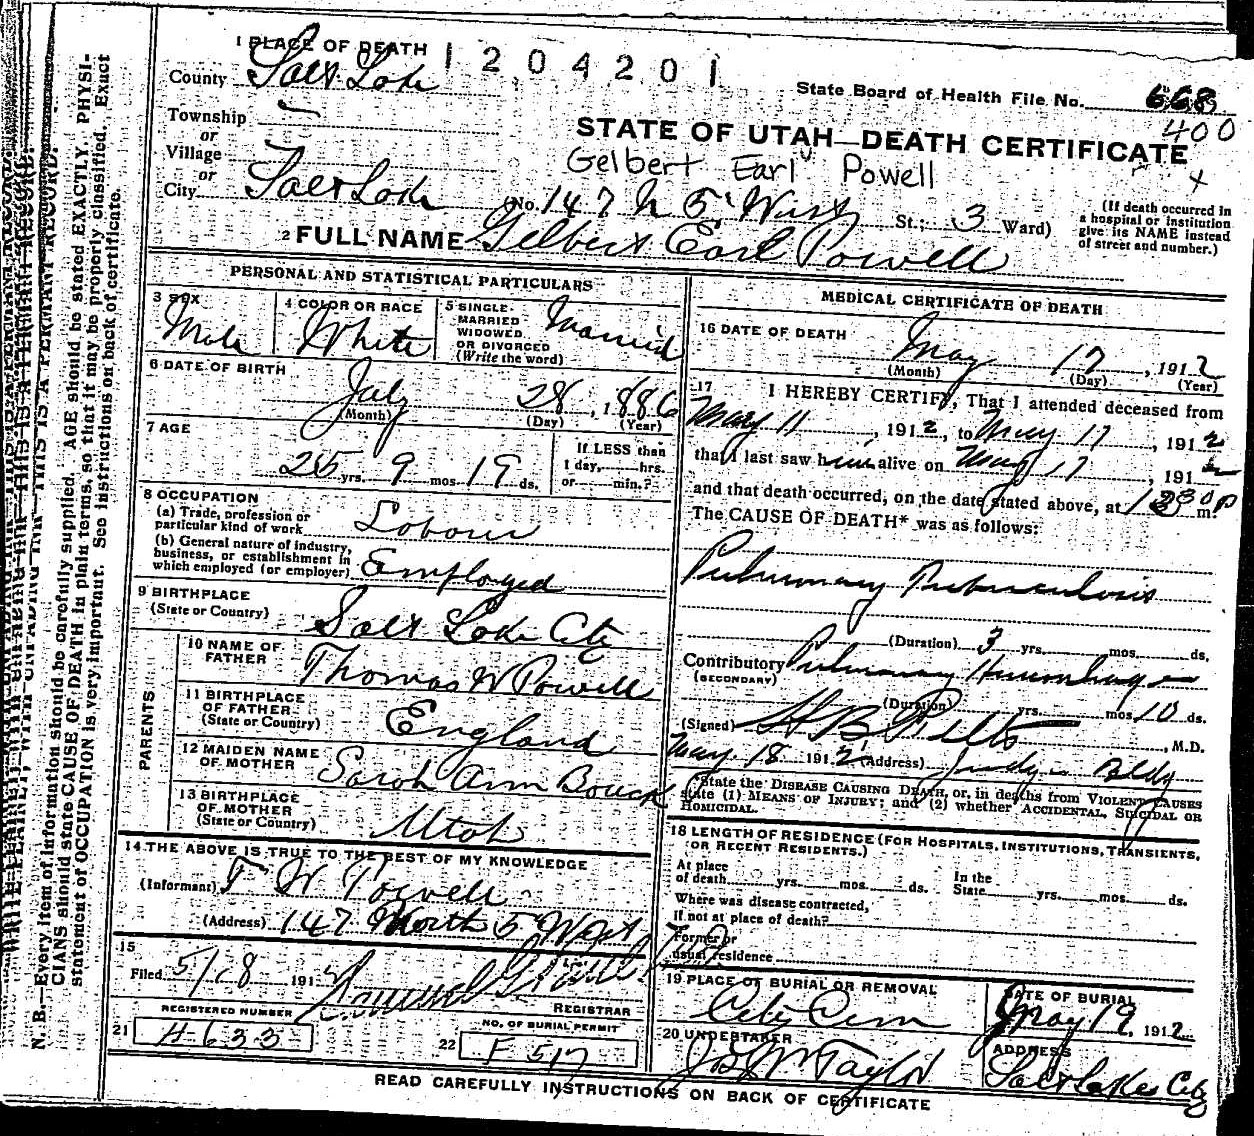 1 PLACE OF DEATH 1 2 0 4 2 0 1
County Salt Lake
State Board of Health File No. 668
400
Township
or
Village
or
City Salt Lake
STATE OF UTAH—DEATH CERTIFICATE
Gelbert Earl Powell
No. 147 N 5 West St.; 3 Ward)
(If death occurred in
a hospital or institution
give its NAME instead
of street and number.)
2 FULL NAME Gelbert Earl Powell
PERSONAL AND STATISTICAL PARTICULARS
3 SEX
Male
4 COLOR OR RACE
White
5 SINGLE
MARRIED
WIDOWED
OR DIVORCED
(Write the word)
Married
6 DATE OF BIRTH
July 28, 1886
(Month) (Day) (Year)
7 AGE
25 yrs. 9 mos. 19 ds.
If LESS than
1 day, hrs.
or min.?
8 OCCUPATION
(a) Trade, profession or
particular kind of work Labour
(b) General nature of industry,
business, or establishment in
which employed (or employer) Employed
9 BIRTHPLACE
(State or Country) Salt Lake City
PARENTS
10 NAME OF
FATHER Thomas W Powell
11 BIRTHPLACE
OF FATHER
(State or Country) England
12 MAIDEN NAME
OF MOTHER Sarah Ann Bouck
13 BIRTHPLACE
OF MOTHER
(State or Country) Utah
14 THE ABOVE IS TRUE TO THE BEST OF MY KNOWLEDGE
(Informant) T W Powell
(Address) 147 North 5 West
15
Filed 5/18 191
REGISTRAR
REGISTERED NUMBER
21 H-633
NO. OF BURIAL PERMIT
22 F 517
MEDICAL CERTIFICATE OF DEATH
16 DATE OF DEATH
May 17, 1912
(Month) (Day) (Year)
17
I HEREBY CERTIFY, That I attended deceased from
May 11, 1912, to May 17, 1912
that I last saw him alive on May 17, 191
and that death occurred, on the date stated above, at m.
The CAUSE OF DEATH* was as follows:
Pulmonary Tuberculosis
(Duration) 3 yrs. mos. ds.
Contributory Pulmonary Hemorrhage
(SECONDARY)
(Duration) yrs. mos. 10 ds.
(Signed) , M.D.
May 18 1912 (Address) Judge Bldg
*State the DISEASE CAUSING DEATH, or, in deaths from VIOLENT CAUSES
state (1) MEANS OF INJURY; and (2) whether ACCIDENTAL, SUICIDAL OR
HOMICIDAL.
18 LENGTH OF RESIDENCE (FOR HOSPITALS, INSTITUTIONS, TRANSIENTS,
OR RECENT RESIDENTS.)
At place
of death yrs. mos. ds. In the
State yrs. mos. ds.
Where was disease contracted,
if not at place of death?
Former or
usual residence
19 PLACE OF BURIAL OR REMOVAL
City Cem
DATE OF BURIAL
May 19, 1912
20 UNDERTAKER
Taylor
ADDRESS
Salt Lake City
READ CAREFULLY INSTRUCTIONS ON BACK OF CERTIFICATE
N. B.—Every item of information should be carefully supplied. AGE should be stated EXACTLY. PHYSI-
CIANS should state CAUSE OF DEATH in plain terms, so that it may be properly classified. Exact
statement of OCCUPATION is very important. See instructions on back of certificate.